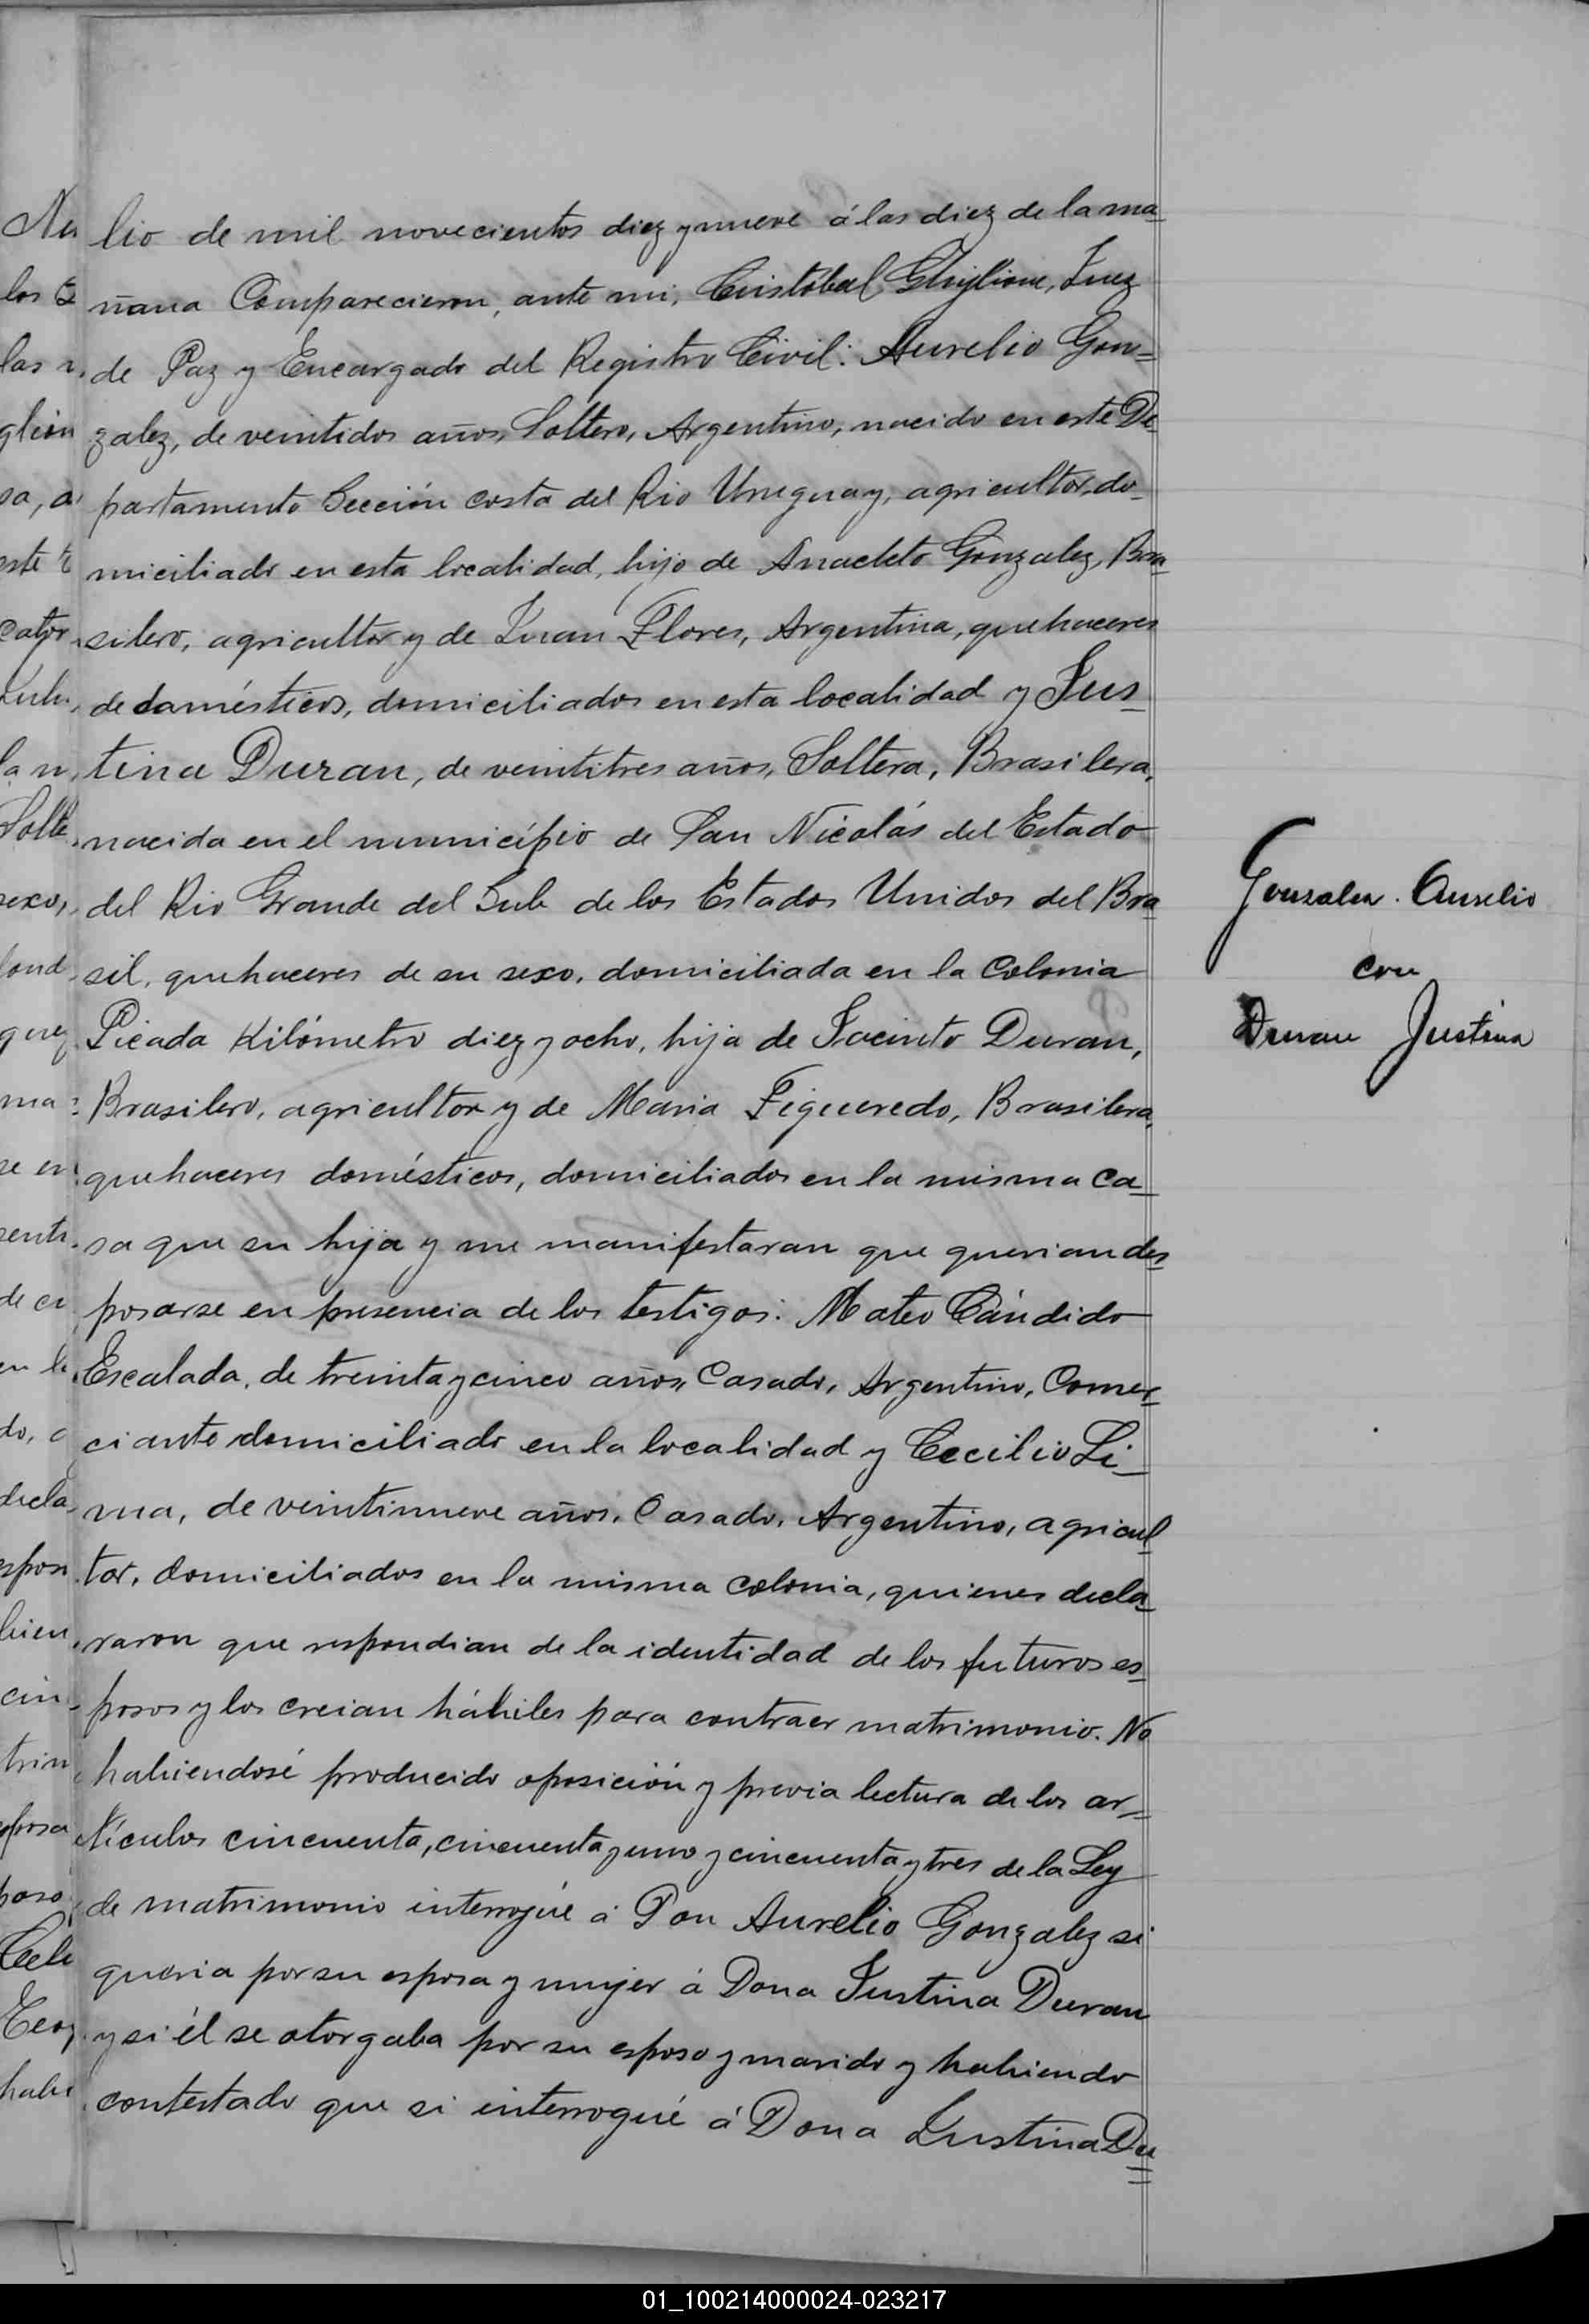 lio de mil novecientos diez y nueve á las diez de la ma-
ñana Comparecieron, ante mi, Cristóbal Ghiglione, Juez
de Paz y Encargado del Registro Civil: Aurelio Gon=
zalez, de veintidos años, Soltero, Argentino, nacido en este De-
partamento Sección costa del Rio Uruguay, agricultor, do-
miciliado en esta localidad, hijo de Anacleto Gonzalez, Bra-
silero, agricultor y de Juan Flores, Argentina, quehaceres
de daméstico, domiciliados en esta localidad y Jus-
tina Duran, de veintitres años, Soltera, Brasilera,
nacida en el município de San Nicolás del Estado
del Rio Grande del Sub de los Estados Unidos del Bra-
sil, quehaceres de su sexo, domiciliada en la Colonia
Picada Kilómetro diez y ocho, hija de Jacinto Duran,
Brasilero, agricultor y de Maria Figueredo, Brasilera,
quehaceres domésticos, domiciliados en la misma ca-
sa que su hija y me manifestaran que querian des-
posarse en presencia de los testigos: Mateo Cándido
Escalada, de treinta y cinco años, Casado, Argentino, Comer-
ciante domiciliado en la localidad y Cecilio Li-
ma, de veintinueve años, Casado, Argentino, agricul-
tor, domiciliados en la misma colonia, quienes decla-
raron que respondian de la identidad de los futuros es-
posos y los creian hábiles para contraer matrimonio. No
habiendosé producido oposición y previa lectura de los ar-
tículos cincuenta, cincuenta y uno y cincuenta y tres de la Ley
de matrimonio interrogúe á Don Aurelio Gonzalez si
queria por su esposa y mujer á Dona Justina Duran
y si él se otorgaba por su esposo y marido y habiendo
contestado que si interrogué á Dona Justina Du=
Gonzalez. Aurelio
con
Duran Justina
01_100214000024-023217